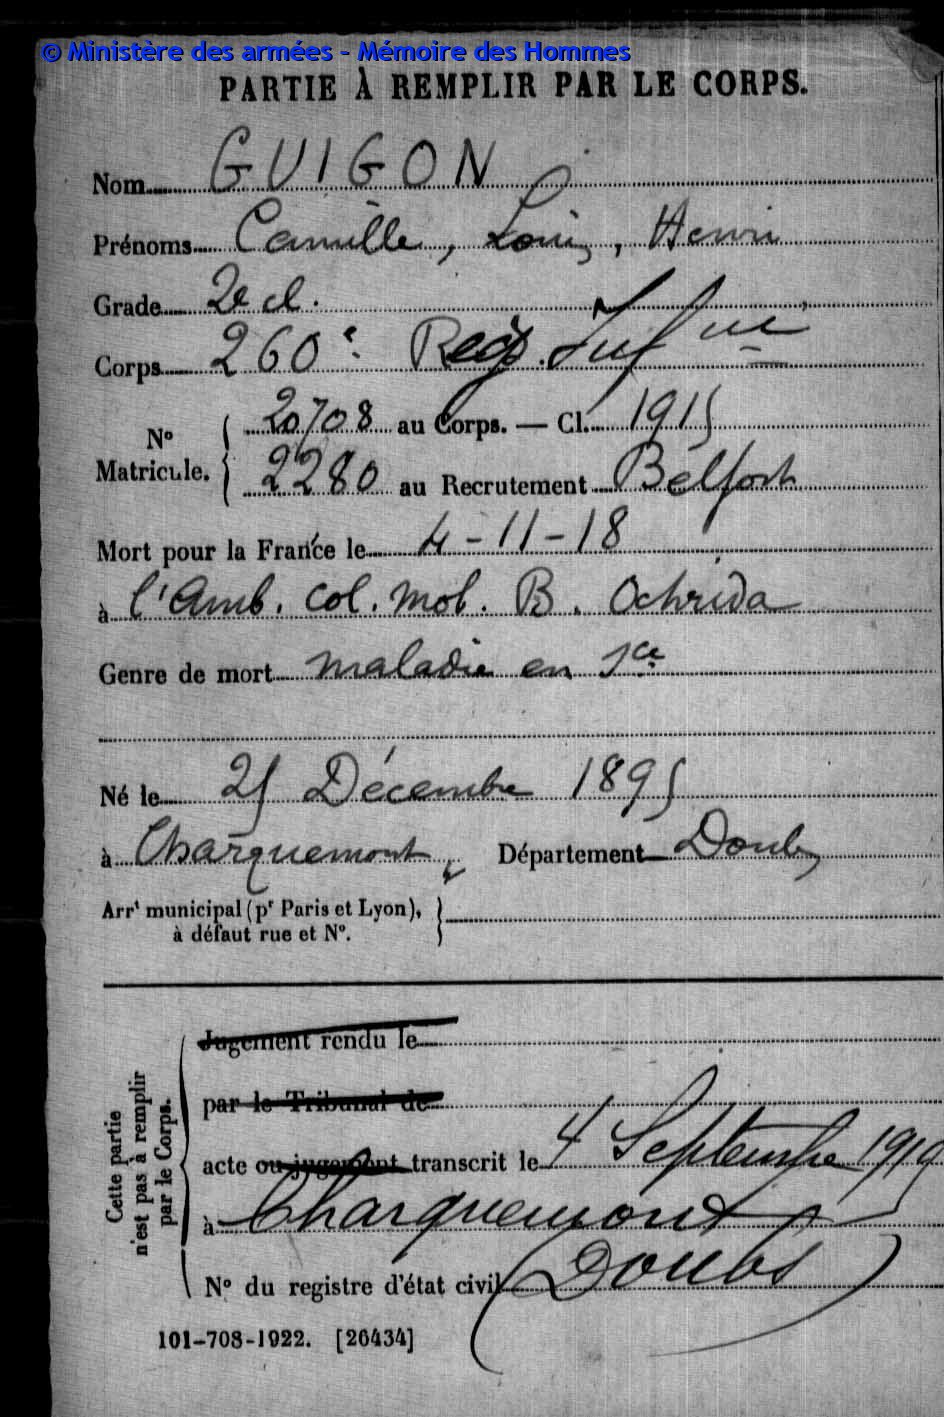 © Ministère des armées - Mémoire des Hommes
PARTIE À REMPLIR PAR LE CORPS.
Nom GUIGON
Prénoms Camille, Louis, Henri
Grade 2e cl.
Corps 260e Rég. Inf rie
No Matricule. { 20708 au Corps. — Cl. 1915
2280 au Recrutement Belfort
Mort pour la France le 4-11-18
à l'Amb. Col. Mob. B. Ochrida
Genre de mort maladie en sce
Né le 25 Décembre 1895
à Charquemont Département Doubs
Arrt municipal (pr Paris et Lyon), }
à défaut rue et No.
Cette partie n'est pas à remplir par le Corps.
Jugement rendu le
par le Tribunal de
acte ou jugement transcrit le 4 Septembre 1919
à Charquemont
(Doubs)
No du registre d'état civil
101-708-1922. [26434]